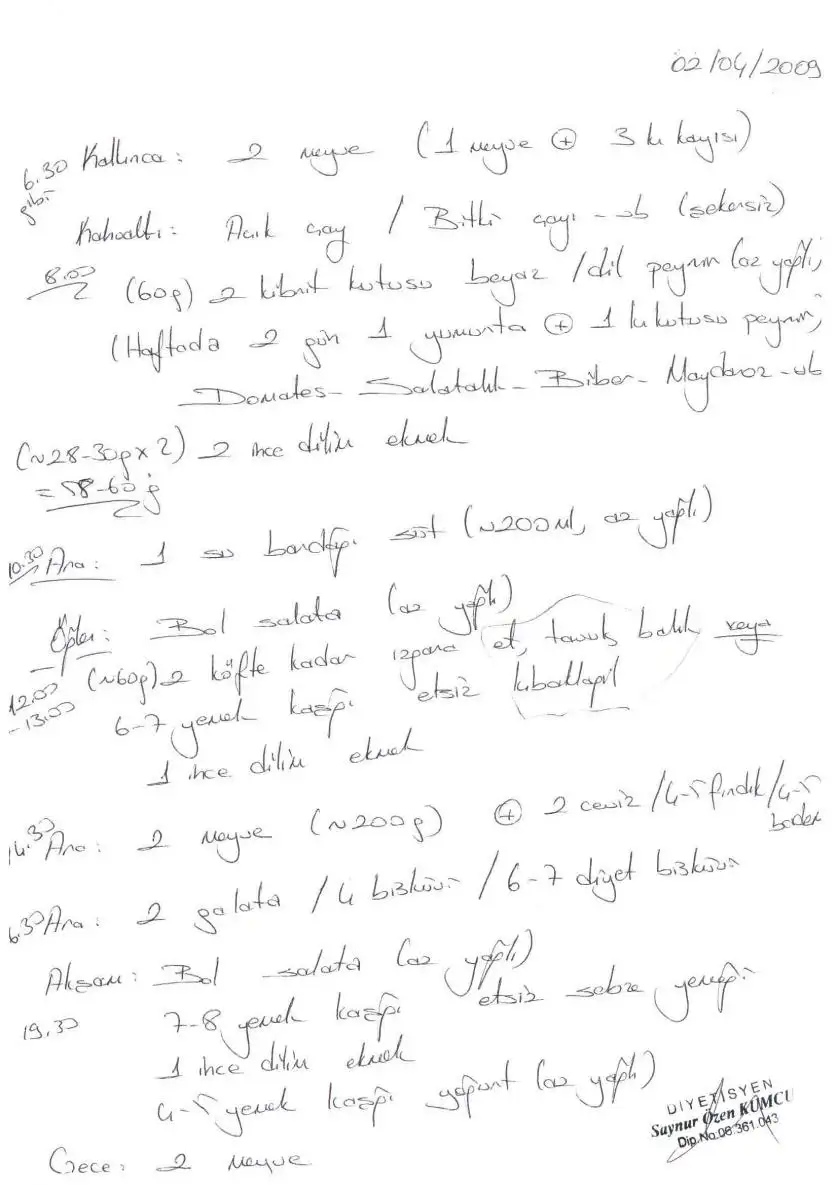 02/04/2009
6.30 gibi Kalkınca: 2 meyve (1 meyve + 3 k. kayısı)
Kahvaltı: Açık çay / Bitki çayı - vb (şekersiz)
8.00 (60g) 2 kibrit kutusu beyaz / dil peyniri (az yağlı)
(Haftada 2 gün 1 yumurta + 1 k. kutusu peynir)
Domates - Salatalık - Biber - Maydanoz - vb
(~28-30g x 2) 2 ince dilim ekmek
= 58-60 g
10.30 Ara: 1 su bardağı süt (~200 ml, az yağlı)
Öğlen: Bol salata (az yağlı)
12.00 - 13.00 (~60g) 2 köfte kadar ızgara et, tavuk balık veya
6-7 yemek kaşığı etsiz kibaklagil
1 ince dilim ekmek
14.30 Ara: 2 meyve (~200g) + 2 ceviz / 4-5 fındık / 4-5 badem
6.30 Ara: 2 galeta / 4 bisküvi / 6-7 diyet bisküvi
Akşam: Bol salata (az yağlı)
19.30 7-8 yemek kaşığı etsiz sebze yemeği
1 ince dilim ekmek
4-5 yemek kaşığı yoğurt (az yağlı)
Gece: 2 meyve
DİYETİSYEN
Saynur Özen KÜMCÜ
Dip.No.06.361.043